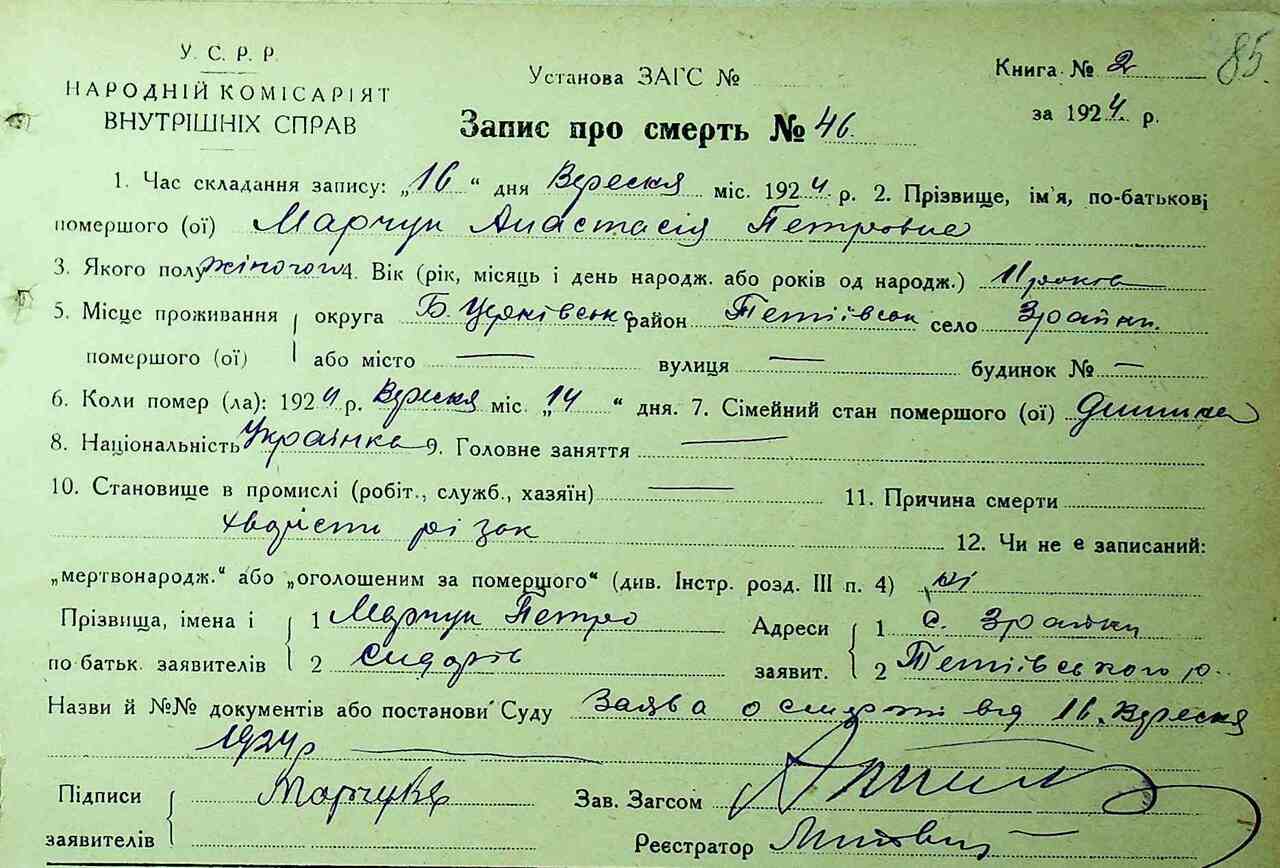 У. С. Р. Р.
НАРОДНІЙ КОМІСАРІЯТ
ВНУТРІШНІХ СПРАВ
Установа ЗАГС №
Книга № 2
85.
за 1924 р.
Запис про смерть № 46.
1. Час складання запису: „16“ дня Вересня міс. 1924 р. 2. Прізвище, ім'я, по-батькові
помершого (ої) Марчук Анастасія Петровна
3. Якого полу жіночого 4. Вік (рік, місяць і день народж. або років од народж.) 11 років
5. Місце проживання округа Б. Церківська район Тетіївськ село Зрайки.
помершого (ої) або місто — вулиця — будинок № —
6. Коли помер (ла): 1924 р. Вересня міс. „14“ дня. 7. Сімейний стан помершого (ої)
8. Національність Українка 9. Головне заняття —
10. Становище в промислі (робіт., служб., хазяїн) — 11. Причина смерти
різок
12. Чи не є записаний:
„мертвонародж.“ або „оголошеним за помершого“ (див. Інстр. розд. III п. 4) ні
Прізвища, імена і 1 Марчук Петро Адреси 1 с. Зрайки
по батьк. заявителів 2 Сидорів заявит. 2 Тетіївського р.
Назви й №№ документів або постанови Суду Заява о смерти від 16. Вересня
1924 р —
Підписи Марчук Зав. Загсом
заявителів Реєстратор